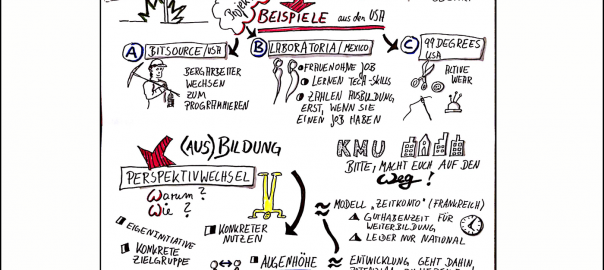 BEISPIELE aus den USA
A BITSOURCE/USA
BERGARBEITER
WECHSEN
ZUM
PROGRAMMIEREN
B LABORATORIA/MEXICO
FRAUEN OHNE JOB
LERNEN TECH-SKILLS
ZAHLEN AUSBILDUNG
ERST, WENN SIE
EINEN JOB HABEN
C 99DEGREES
USA
ACTIVE
WEAR
(AUS)BILDUNG
PERSPEKTIVWECHSEL
Warum?
Wie?
EIGENINITIATIVE
KONKRETE
ZIELGRUPPE
KONKRETER
NUTZEN
AUGENHÖHE
KMU
BITTE, MACHT EUCH AUF DEN
Weg!
MODELL "ZEITKONTO" (FRANKREICH)
GUTHABENZEIT FÜR
WEITERBILDUNG
LEIDER NUR NATIONAL
ENTWICKLUNG GEHT DAHIN,